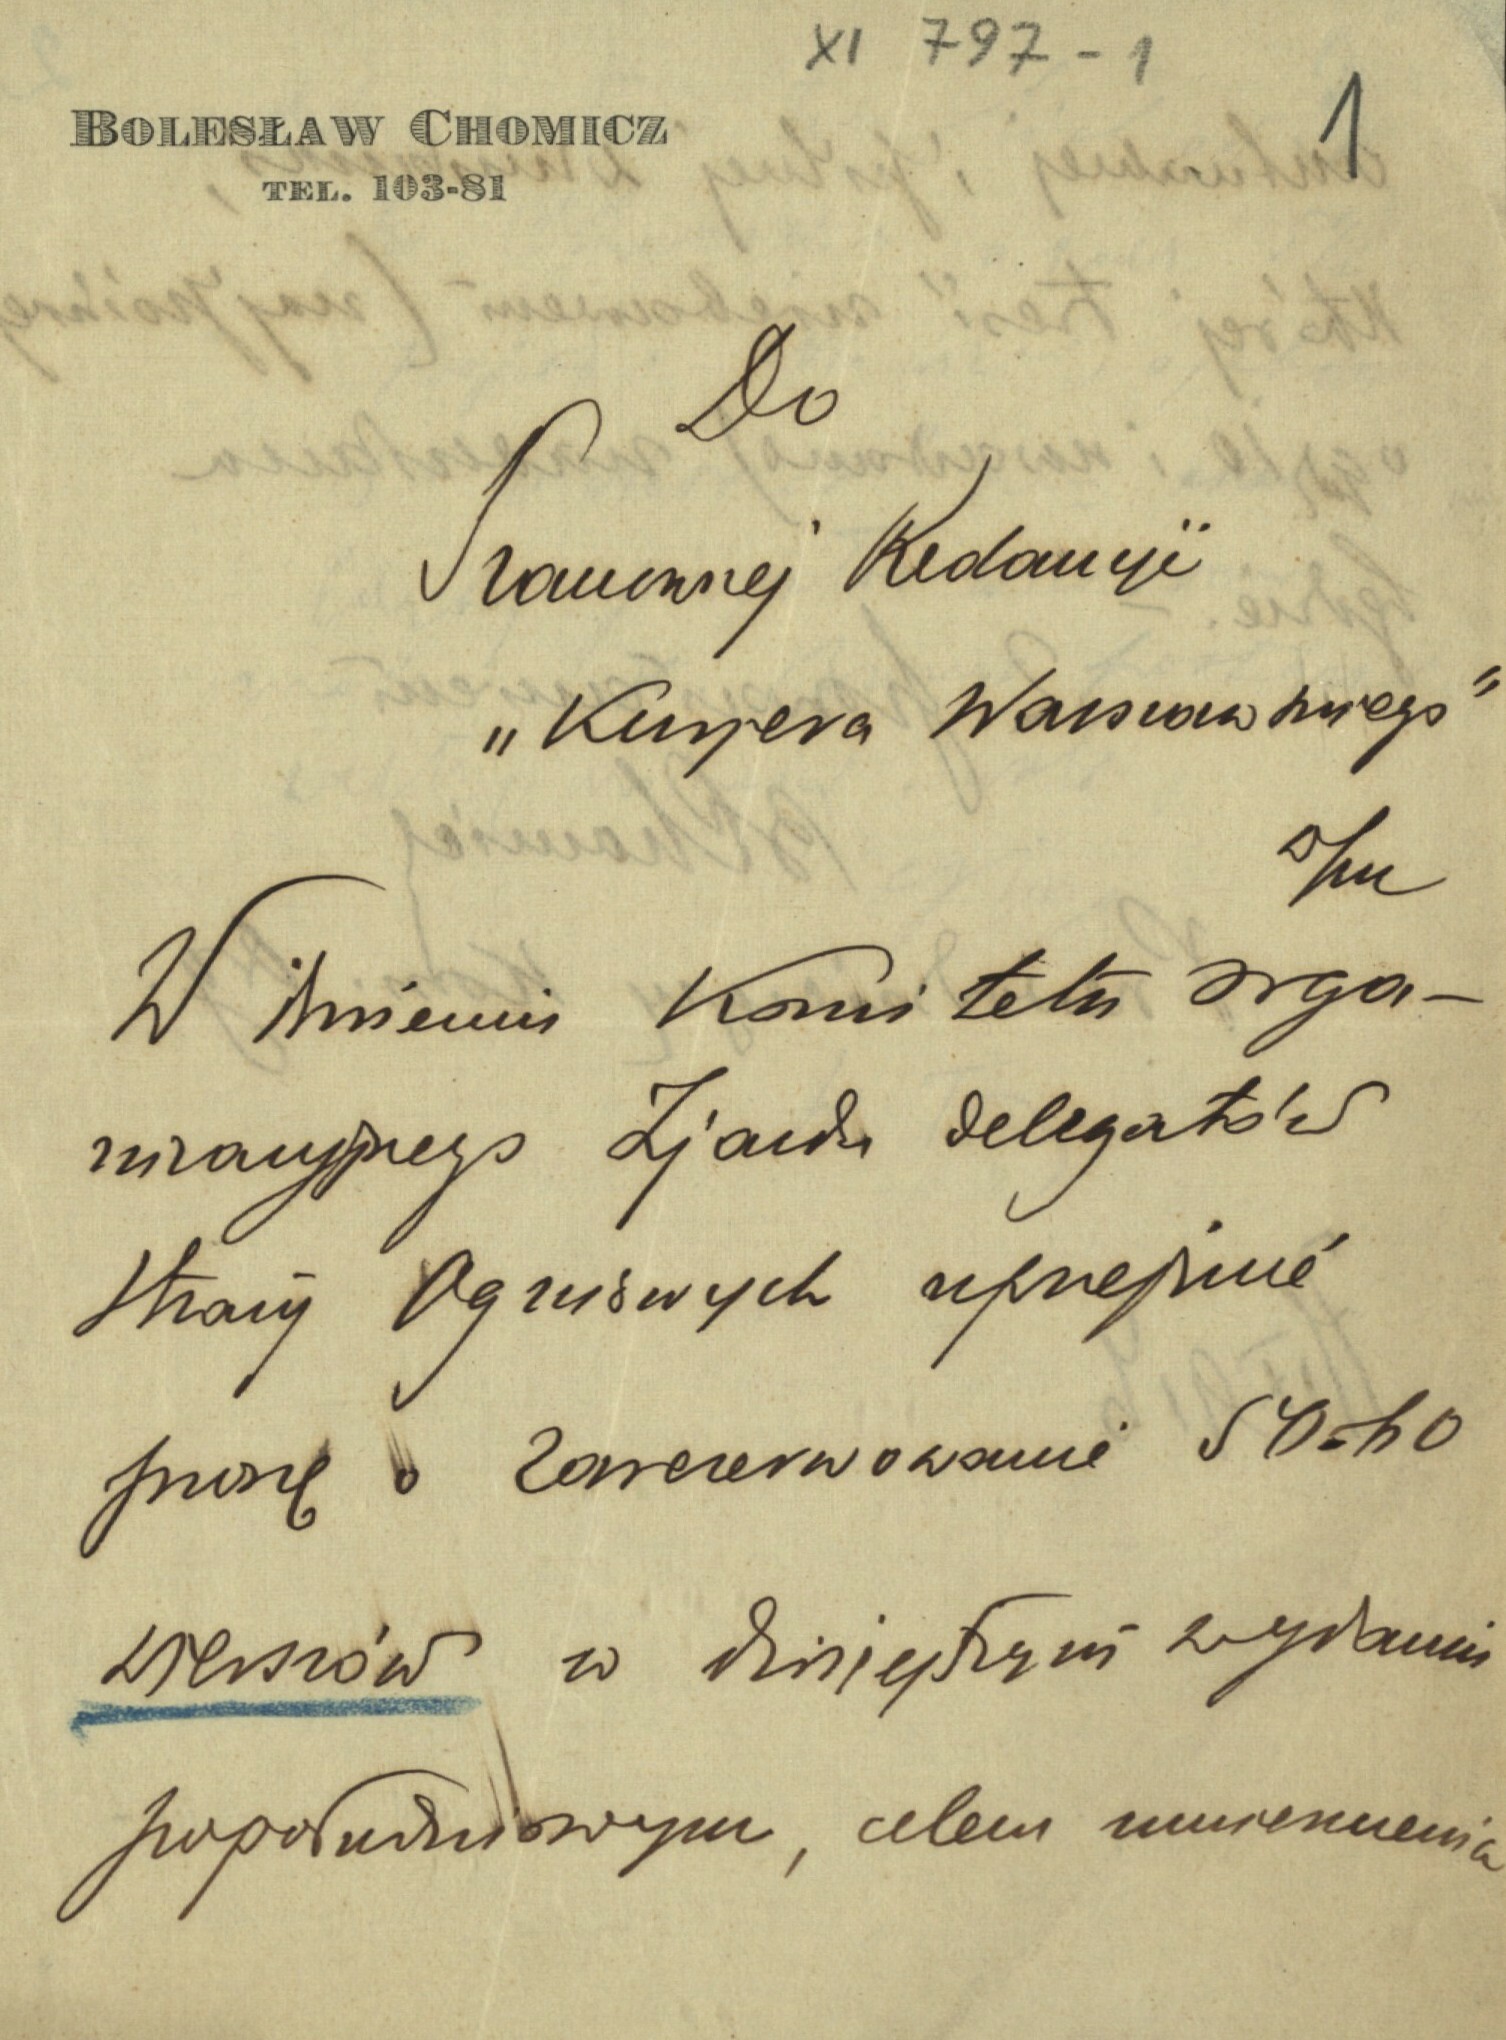 XI 797-1
1
BOLESŁAW CHOMICZ
TEL. 103-81
Do
Szanownej Redakcyi
„Kurjera Warszawskiego"
W imieniu Komitetu orga-
nizacyjnego Zjazdu delegatów
Straży Ogniowych uprzejmie
proszę o zarezerwowanie 50-60
wierszów w dzisiejszym wydaniu
popołudniowym, celem umieszczenia